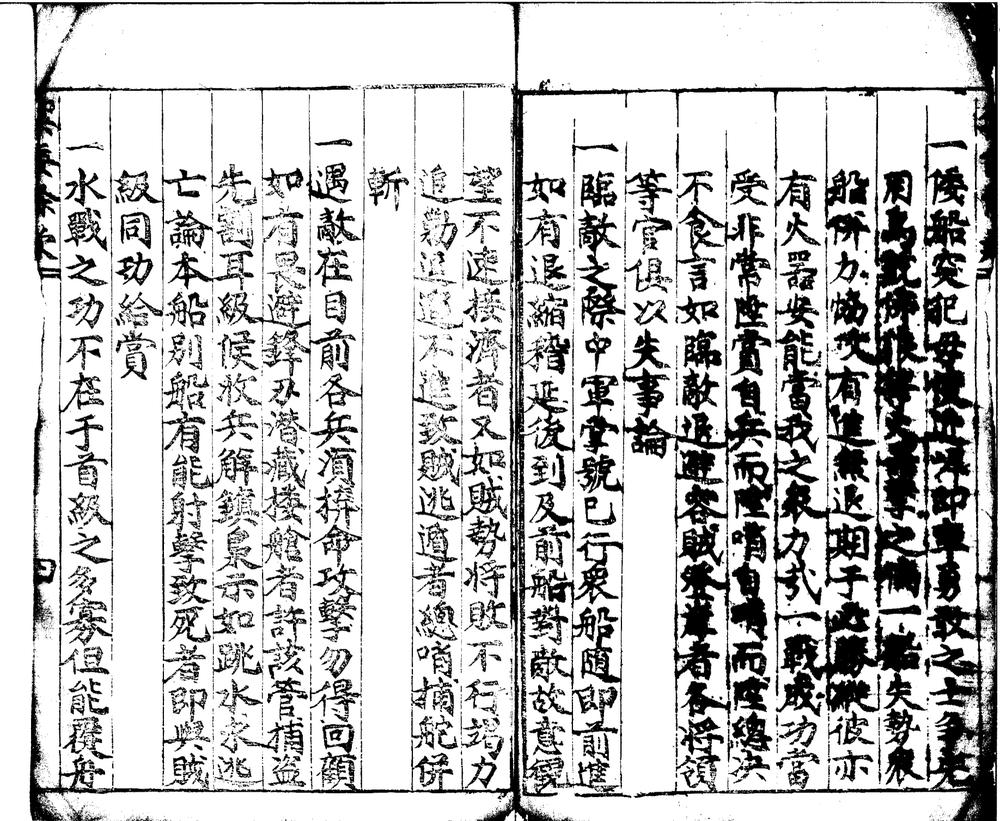 一倭船突犯毋使近岸即率勇敢之士爭先
用鳥銃佛狼機火之一船失勢衆
船併力協攻有進無退期于必勝縱彼亦
有火器安能當我之衆力哉一戰成功當
受非常陞賞自兵而陞哨自哨而陞總決
不食言如臨敵退避容賊登岸者各將領
等官俱以失事論
一臨敵之際中軍掌號已行衆船随即前進
如有退縮稽延後到及前船對敵故意
望不速接濟者又如賊勢將敗不行竭力
追勦逗遛不進致賊逃遁者總哨捕舵併
斬
一遇敵在目前各兵須拚命攻擊勿得回顧
如有畏避鋒刃潜藏楼艙者許該管捕盗
先割耳級候收兵解鎮梟示如跳水水逃
亡論本船别船有能射擊致死者即與賊
級同功給賞
一水戰之功不在于首級之多寡但能覆舟